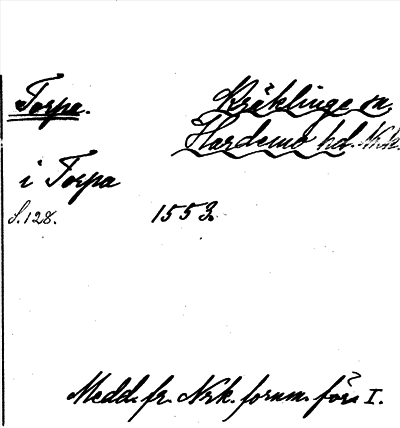 Torpa.
Kräklinge sn,
Hardemo hd. Nrk.
i Torpa
S. 128.
1553.
Medd. fr. Nrk. fornm. för. I.